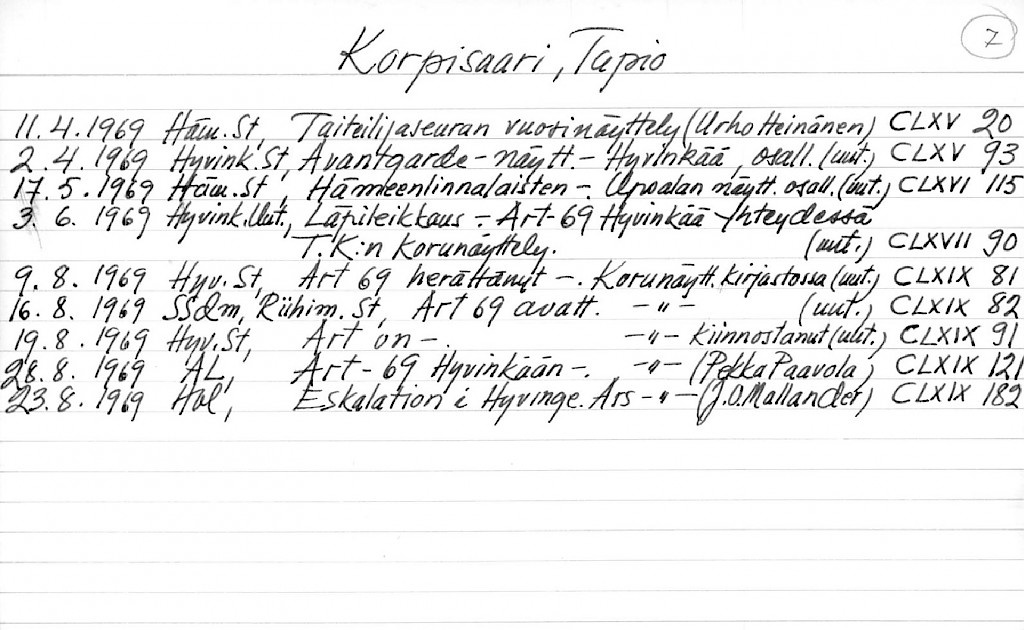 7
Korpisaari, Tapio
11.4.1969 Häm.St, Taiteilijaseuran vuosinäyttely (Urho Heinänen) CLXV 20
2.4.1969 Hyvink.St, Avantgarde-näytt.- Hyvinkää, osall. (uut.) CLXV 93
17.5.1969 Häm.St, Hämeenlinnalaisten - näytt. osall. (uut.) CLXVI 115
3.6.1969 Hyvink.Uut., Läpileikkaus - Art-69 Hyvinkää Yhteydessä
T.K:n Korunäyttely. (uut.) CLXVII 90
9.8.1969 Hyv.St, Art 69 herättänyt -. Korunäytt. Kirjastossa (uut.) CLXIX 81
16.8.1969 SSdm, Riihim.St, Art 69 avatt. -"- (uut.) CLXIX 82
19.8.1969 Hyv.St, Art on -. -"- Kiinnostanut (uut.) CLXIX 91
28.8.1969 AL, Art-69 Hyvinkään -. -"- (Pekka Paavola) CLXIX 121
23.8.1969 Hbl, Eskalation i Hyvinge. Ars -"- (J.O.Mallander) CLXIX 182